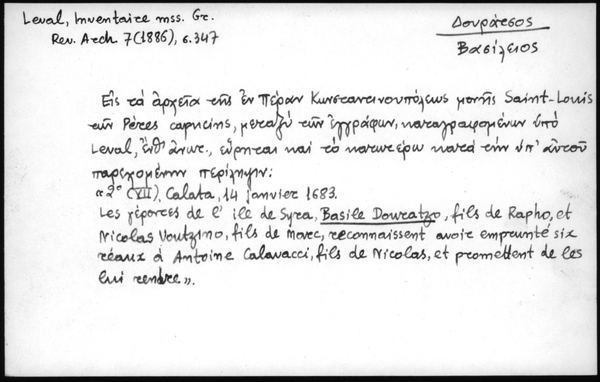 Leval, Inventaire mss. Gr.
Rev. Arch. 7 (1886), σ. 347
Δουράτσος
Βασίλειος
Εἰς τὰ ἀρχεῖα τῆς ἐν Πέραν Κωνσταντινουπόλεως μονῆς Saint-Louis
τῶν Pères capucins, μεταξὺ τῶν ἐγγράφων, καταγραφομένων ὑπὸ
Leval, ἔνθ' ἀνωτ., εὕρηται καὶ τὸ κατωτέρω κατὰ τὴν ὑπ' αὐτοῦ
παρεχομένην περίληψιν:
«2° (VII), Calata, 14 janvier 1683.
Les gérontes de l' ile de Syra, Basile Douratzo, fils de Rapho, et
Nicolas Voutzino, fils de Marc, reconnaissent avoir emprunté six
réaux à Antoine Calavacci, fils de Nicolas, et promettent de les
lui rendre».